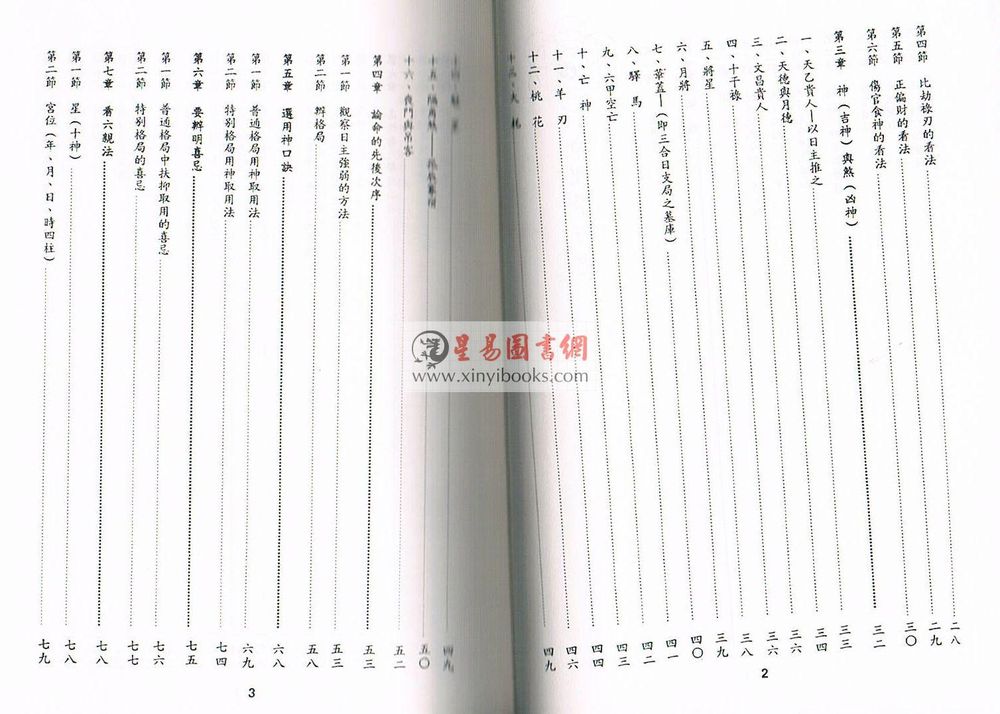 第四節 比劫祿刃的看法……二八
第五節 正偏財的看法……二九
第六節 傷官食神的看法……三〇
第三章 神(吉神)與煞(凶神)……三二
一、天乙貴人—以日主推之……三三
二、天德與月德……三四
三、文昌貴人……三六
四、十干祿……三六
五、將星……三九
六、月將……四〇
七、華蓋—(即三合日支局之墓庫)……四一
八、驛馬……四二
九、六甲空亡……四三
十、亡神……四四
十一、羊刃……四六
十二、桃花……四九
2
……四九
十五、隔角……五〇
十六、喪門與吊客……五二
第四章 論命的先後次序……五三
第一節 觀察日主強弱的方法……五三
第二節 辨格局……五八
第五章 選用神口訣……六八
第一節 普通格局用神取用法……六九
第二節 特別格局用神取用法……七四
第六章 要辨明喜忌……七五
第一節 普通格局中扶抑取用的喜忌……七六
第二節 特別格局的喜忌……七七
第七章 看六親法……七八
第一節 星(十神)……七八
第二節 宮位(年、月、日、時四柱)……七九
3
星易圖書網
www.xinyibooks.com